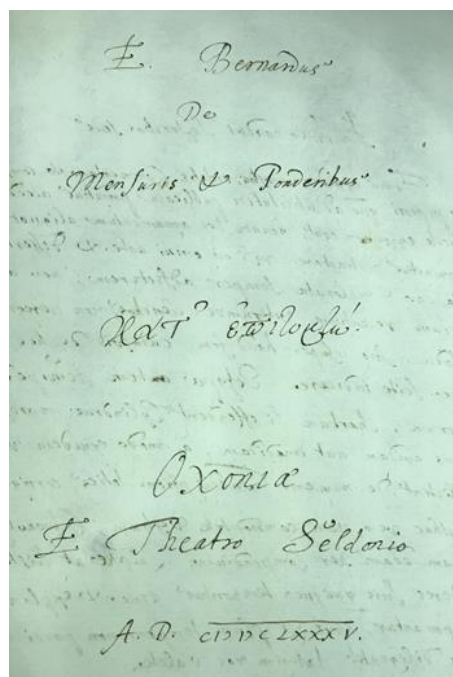 E. Bernardus
De
Mensuris & Ponderibus
κατ' ἐπιτομὴν.
Oxoniæ
E Theatro Seldonio
A. D. CIƆIƆCLXXXV.